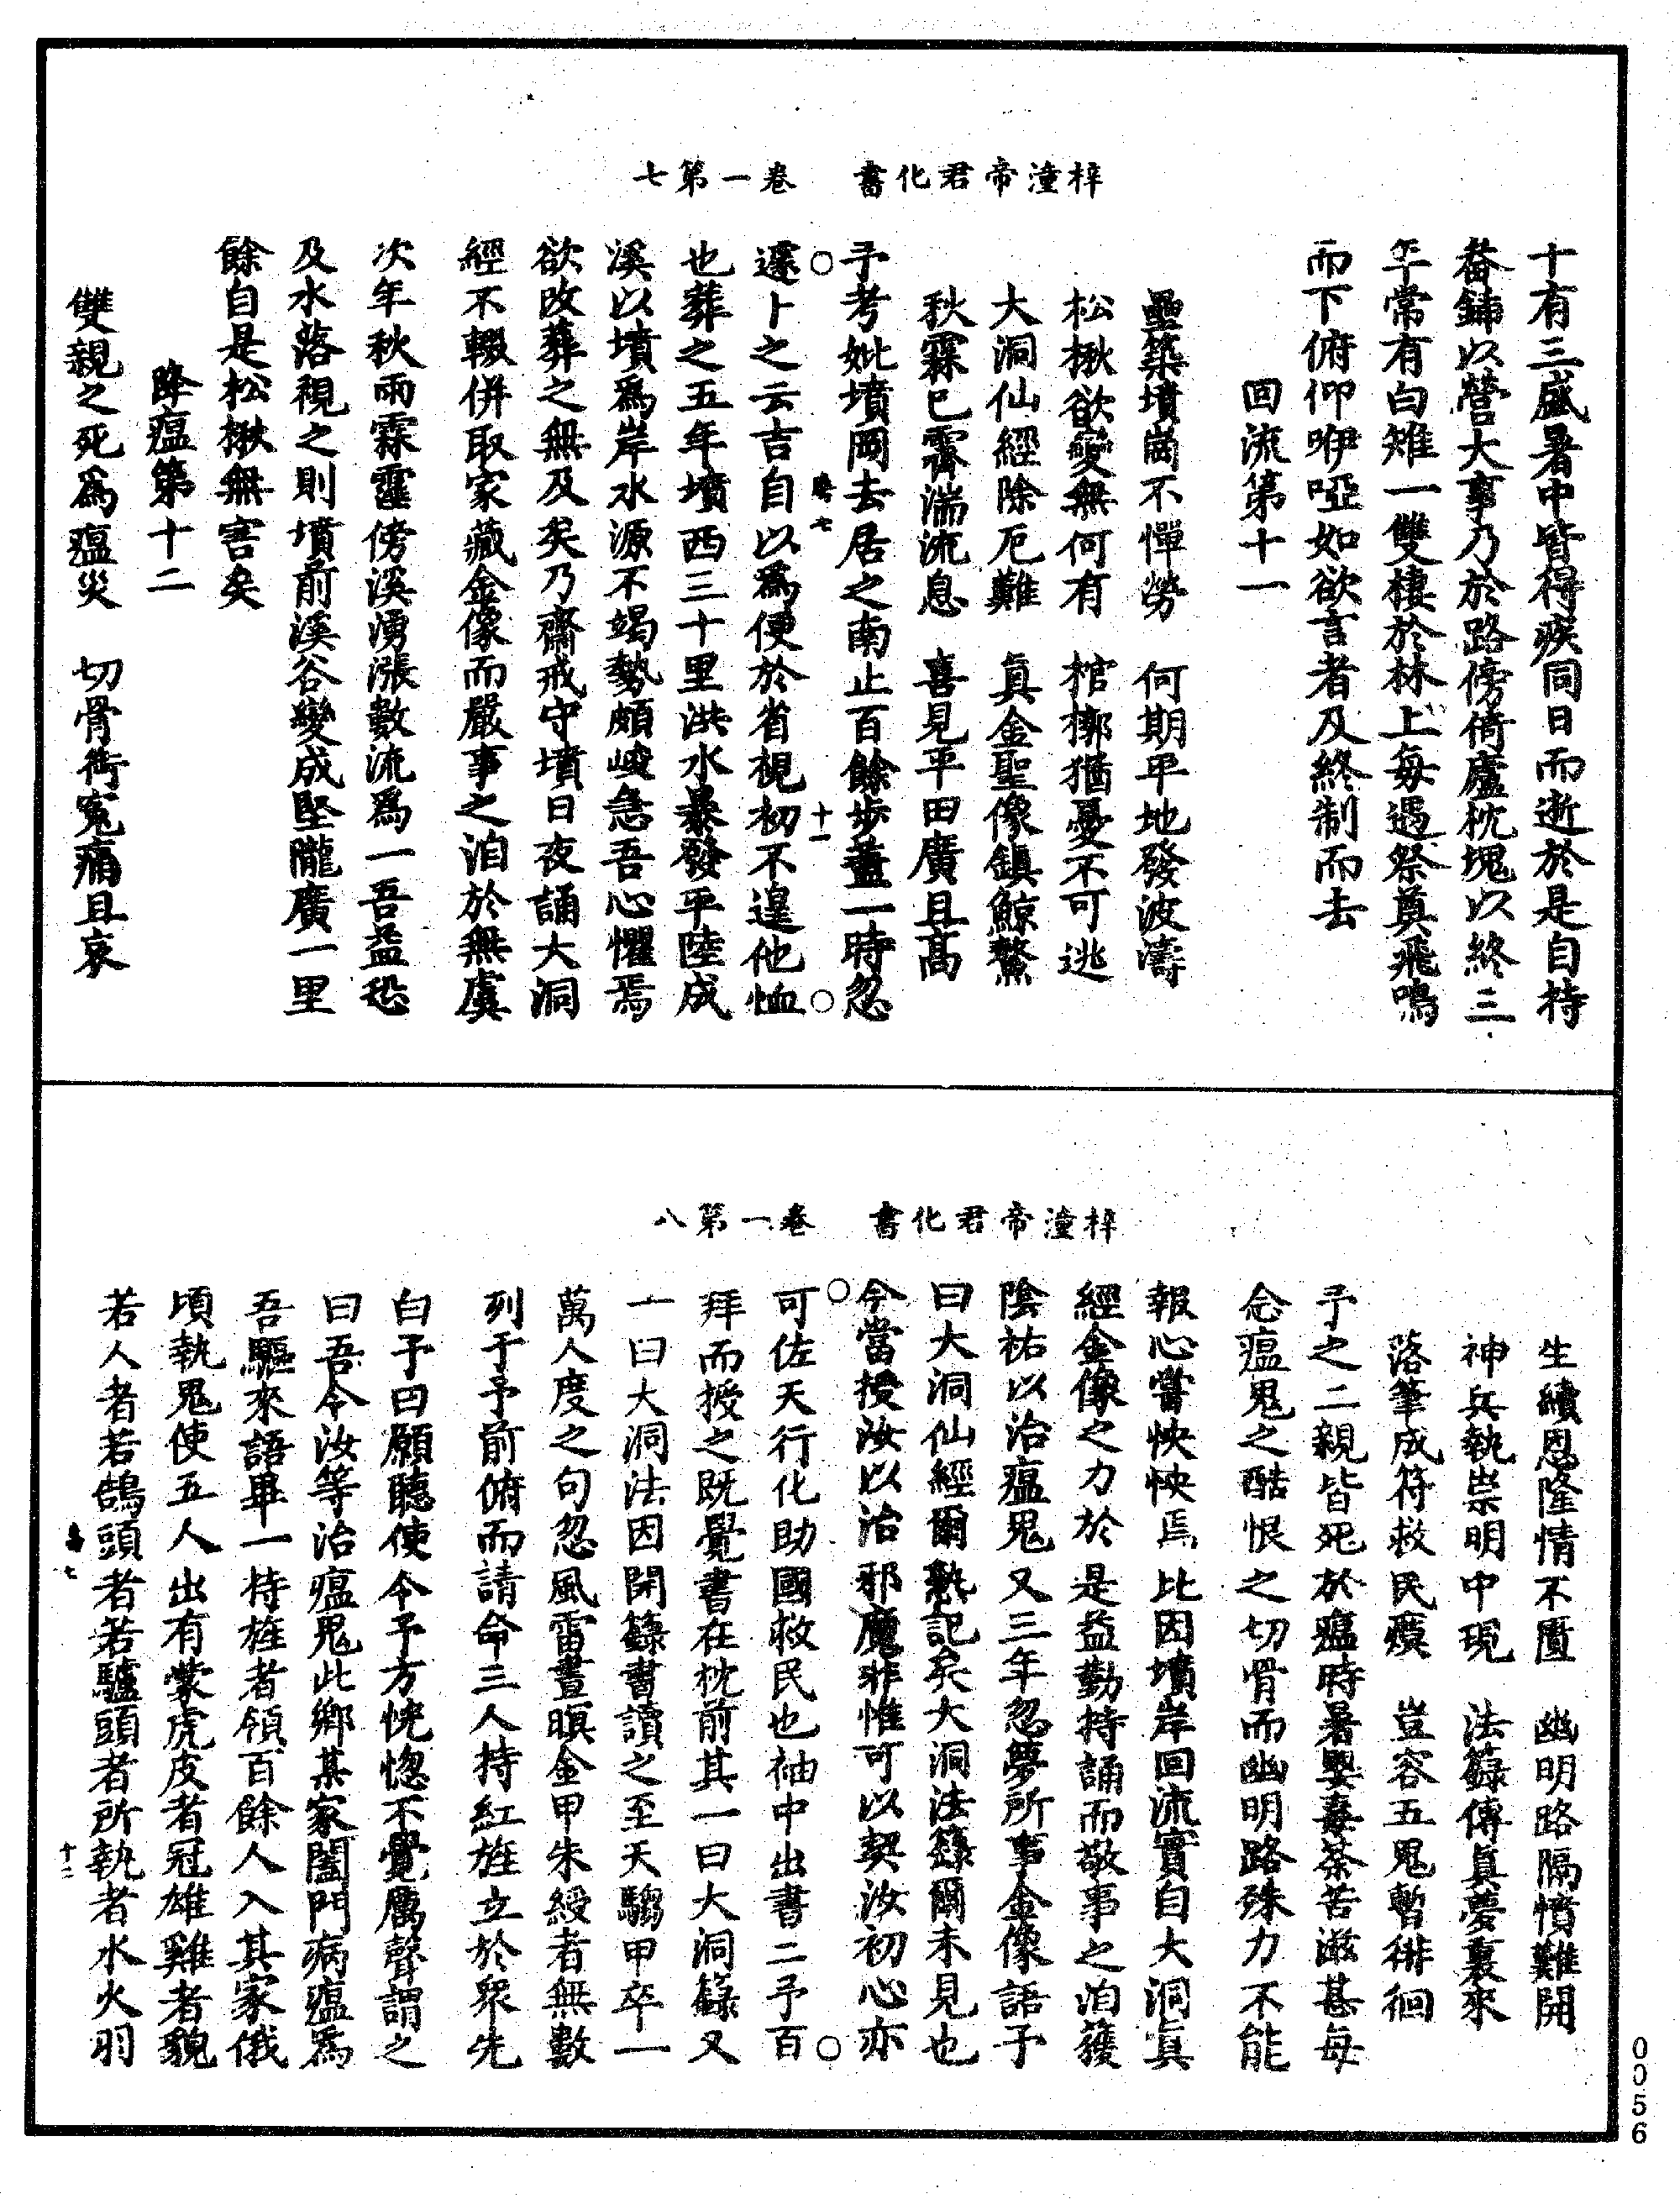 梓潼帝君化書　卷一第七
十有三盛暑中皆得疾同日而逝於是自持
畚鍤以營大事乃於路傍倚廬枕塊以終三
年常有白雉一雙棲於林上每遇祭奠飛鳴
而下俯仰咿啞如欲言者及終制而去
回流第十一
壘築墳崗不憚勞　何期平地發波濤
松楸欲變無何有　棺槨猶憂不可逃
大洞仙經除厄難　真金聖像鎮鯨鰲
秋霖已霽湍流息　喜見平田廣且高
予考妣墳岡去居之南止百餘步蓋一時忽
遽卜之云吉自以爲便於省視初不遑他恤
也葬之五年墳西三十里洪水暴發平陸成
溪以墳爲岸水源不竭勢頗峻急吾心懼焉
欲改葬之無及矣乃齋戒守墳日夜誦大洞
經不輟併取家藏金像而嚴事之洎於無虞
次年秋雨霖霪傍溪湧漲數流爲一吾益恐
及水落視之則墳前溪谷變成堅隴廣一里
餘自是松楸無害矣
降瘟第十二
雙親之死爲瘟災　切骨銜冤痛且哀
梓潼帝君化書　卷一第八
生續恩隆情不匱　幽明路隔憤難開
神兵執祟明中現　法籙傳真夢裏來
落筆成符救民瘼　豈容五鬼暫徘徊
予之二親皆死於瘟時暑嬰毒荼苦滋甚每
念瘟鬼之酷恨之切骨而幽明路殊力不能
報心嘗怏怏焉比因墳岸回流實自大洞真
經金像之力於是益勤持誦而敬事之洎獲
陰祐以治瘟鬼又三年忽夢所事金像語予
曰大洞仙經爾熟記矣大洞法籙爾未見也
今當授汝以治邪魔非惟可以契汝初心亦
可佐天行化助國救民也袖中出書二予百
拜而授之既覺書在枕前其一曰大洞籙又
一曰大洞法因開籙書讀之至天騶甲卒一
萬人度之句忽風雷晝暝金甲朱綬者無數
列于予前俯而請命三人持紅旌立於衆先
白予曰願聽使令予方恍惚不覺厲聲謂之
曰吾今汝等治瘟鬼此鄉某家闔門病瘟爲
吾驅來語畢一持旌者領百餘人入其家俄
頃執鬼使五人出有蒙虎皮者冠雄雞者貌
若人者若鵠頭者若驢頭者所執者水火羽
0056